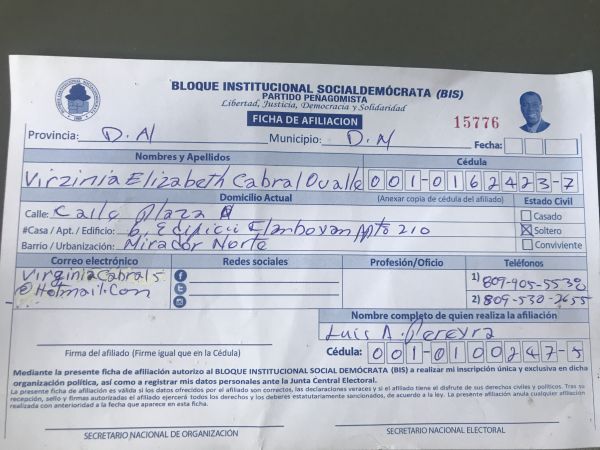 BLOQUE INSTITUCIONAL SOCIALDEMÓCRATA (BIS)
PARTIDO PEÑAGOMISTA
Libertad, Justicia, Democracia y Solidaridad
FICHA DE AFILIACION
15776
Provincia: D.N Municipio: D.N Fecha:
Nombres y Apellidos Cédula
Virzinia Elizabeth Cabral Ovalle 001-0162423-7
Domicilio Actual (Anexar copia de cédula del afiliado) Estado Civil
Calle: Calle Plaza Casado
#Casa / Apt. / Edificio: 6, Edificii Flanboyan Apto 210 Soltero
Barrio / Urbanización: Mirador Norte Conviviente
Correo electrónico Redes sociales Profesión/Oficio Teléfonos
VirginiaCabral5 1) 809-905-5538
@Hotmail.Com 2) 809-530-2655
Nombre completo de quien realiza la afiliación
Luis A. Pereyra
Firma del afiliado (Firme igual que en la Cédula) Cédula: 001-0100247-5
Mediante la presente ficha de afiliación autorizo al BLOQUE INSTITUCIONAL SOCIAL DEMÓCRATA (BIS) a realizar mi inscripción única y exclusiva en dicha
organización política, así como a registrar mis datos personales ante la Junta Central Electoral.
La presente ficha de afiliación es válida si los datos ofrecidos por el afiliado son correctos, las declaraciones veraces y si el afiliado tiene el disfrute de sus derechos civiles y políticos. Tras su
recepción, sello y firmas autorizadas el afiliado ejercerá todos los derechos y los deberes estatutariamente sancionados, de acuerdo a la ley. La presente afiliación anula cualquier afiliación
realizada con anterioridad a la fecha que aparece en esta ficha.
SECRETARIO NACIONAL DE ORGANIZACIÓN SECRETARIO NACIONAL ELECTORAL